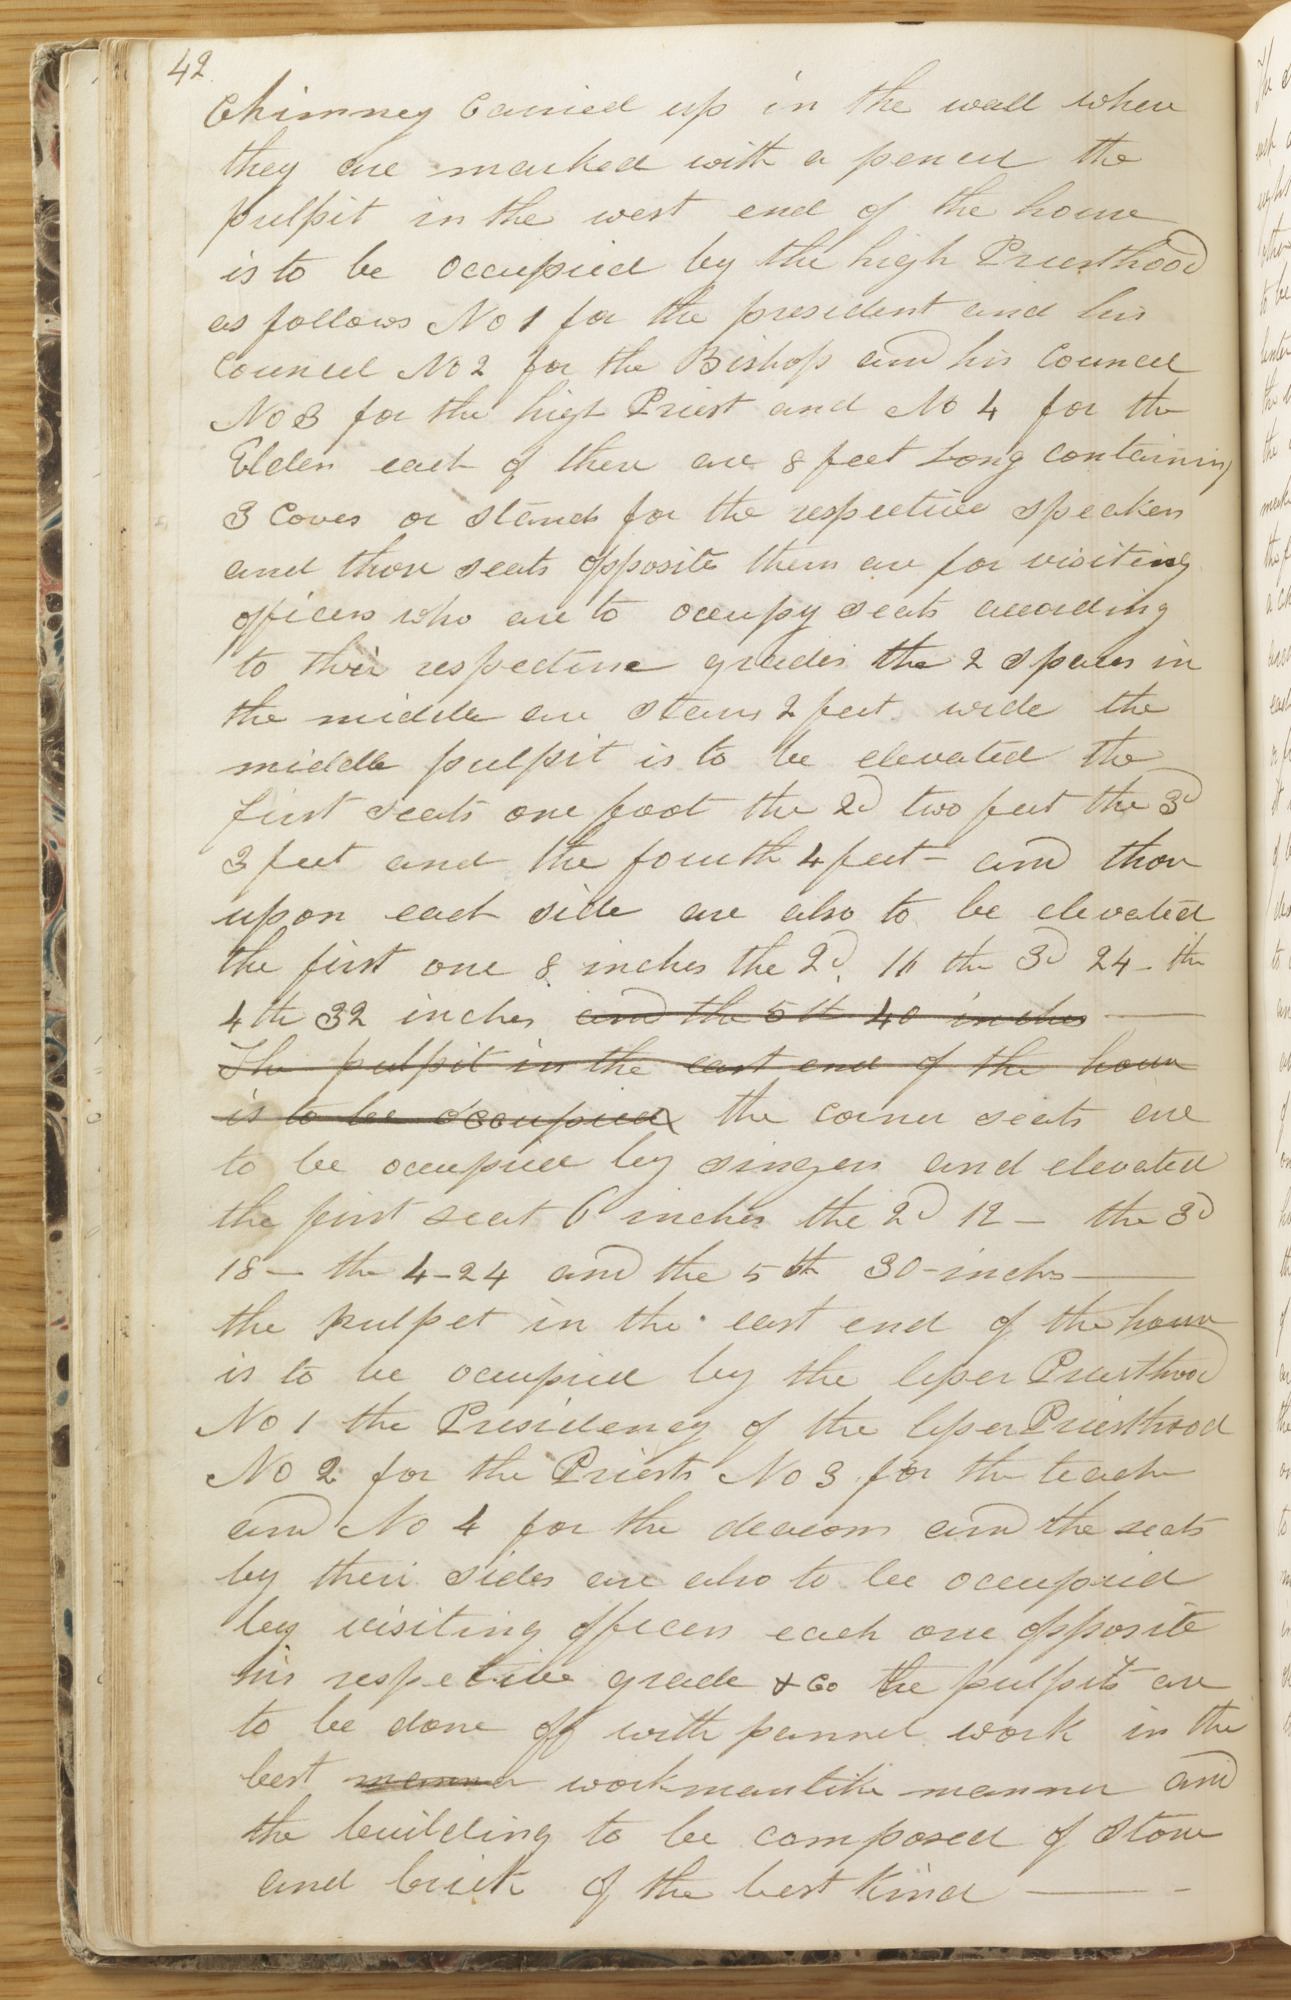 42
Chimney Carried up in the wall where
they are marked with a pencil the
pulpit in the west end of the house
is to be occupied by the high Priesthood
as follows No 1 for the president and his
Council No 2 for the Bishop and his Council
No 3 for the high Priest and No 4 for the
Elders each of these are 8 feet Long containing
3 Coves or stands for the respective speakers
and those seats opposite them are for visiting
officers who are to occupy seats according
to their respective grades the 2 spaces in
the middle are stairs 2 feet wide the
middle pulpit is to be elevated the
first seats one foot the 2d two feet the 3d
3 feet and the fourth 4 feet – and those
upon each side are also to be elevated
the first one 8 inches the 2d. 16 the 3d 24 – the
4th 32 inches and the 5th 40 inches —
The pulpit in the east end of the house
is to be occupied the corner seats are
to be occupied by singers and elevated
the first seat 6 inches the 2d 12 – the 3d
18 – the 4 – 24 and the 5th 30 – inchs —
the pulpet in the east end of the house
is to be occupied by the lesser Priesthood
No 1 the Presidency of the lesser Priesthood
No 2 for the Priests No 3 for the teache
and No 4 for the deacons and the seats
by their sides are also to be occupied
by visiting officers each one opposite
his respective grade & Co the pulpits are
to be done off with pannel work in the
best manner workmanlike manner and
the building to be composed of stone
and brick of the best kind — -